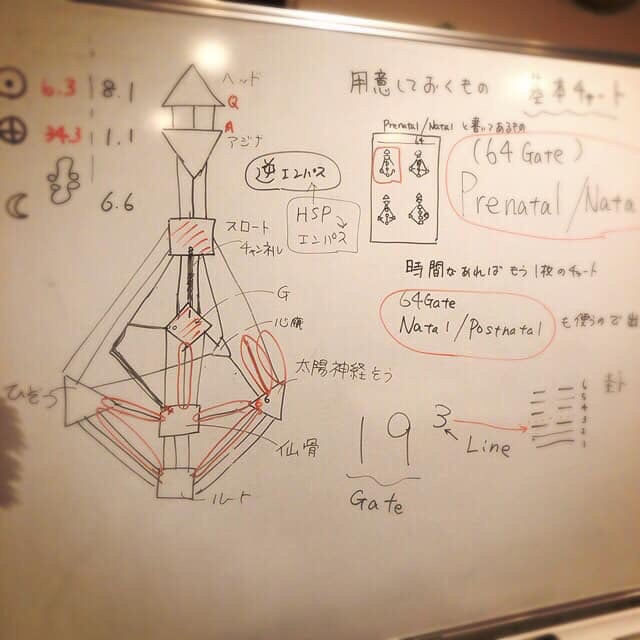 6.3 8.1
34.3 1.1
6.6
ヘッド
Q
A
アジナ
スロート
チャンネル
G
心臓
太陽神経そう
ひぞう
仙骨
ルート
逆エンパス
HSP
エンパス
用意しておくもの 基本チャート
Prenatal/Natalと書いてあるもの
64
(64 Gate)
Prenatal/Nata
時間があればもう1枚のチャート
64Gate
Natal/Postnatal
も使うので出
19 3
Gate
Line
卦
6
5
4
3
2
1